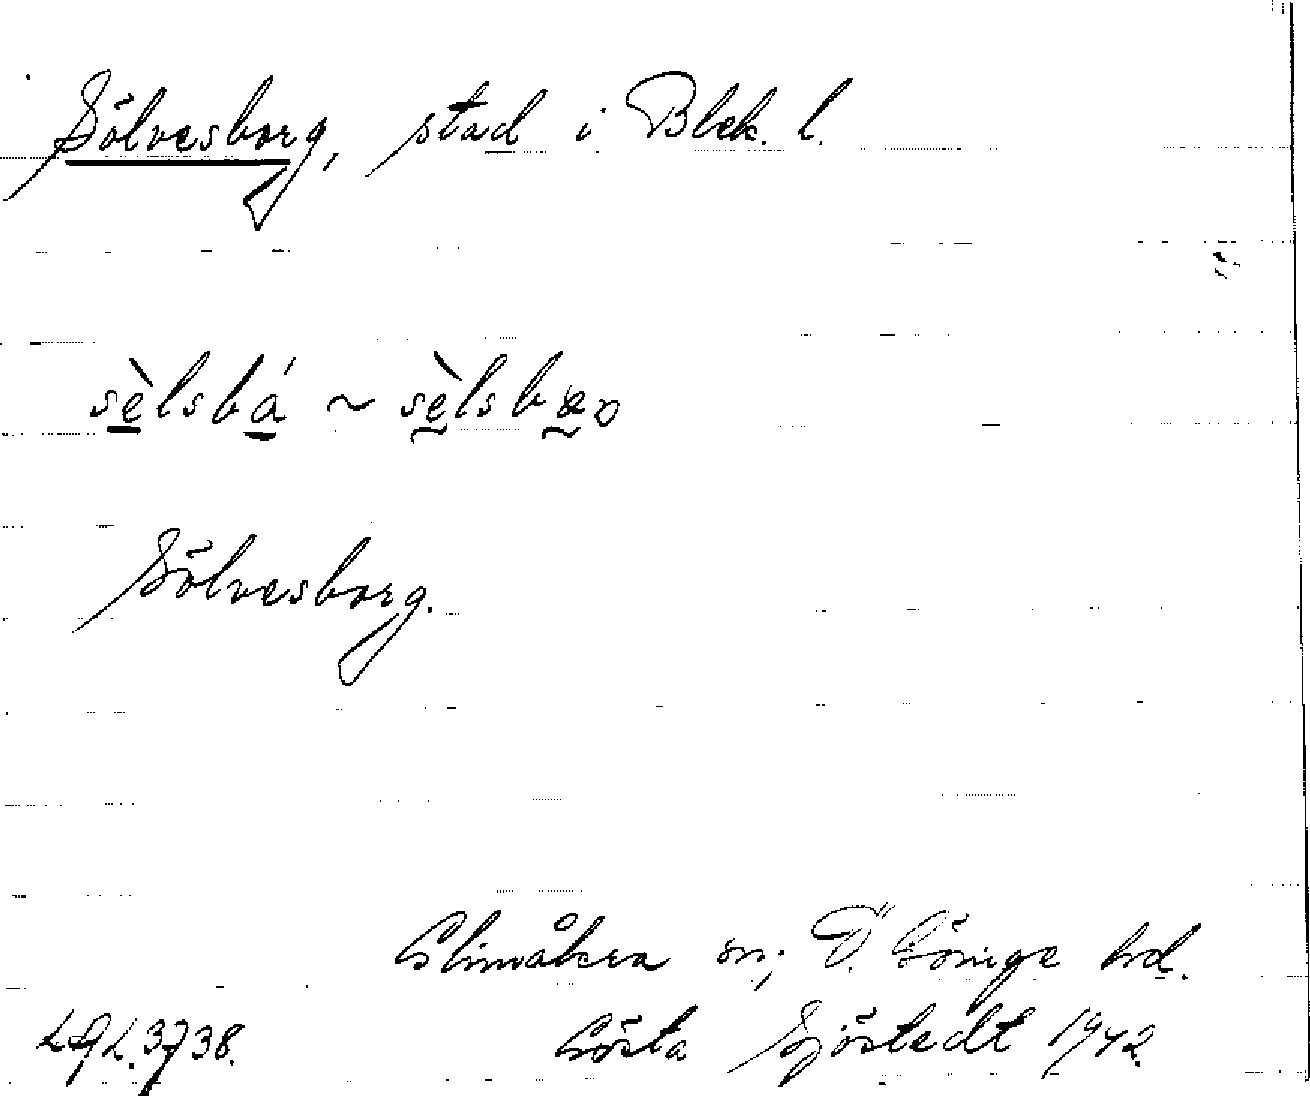 Sölvesborg, stad i Blek. l.
sèlsbá ~ sèlsbæv
Sölvesborg.
Glimåkra sn; Ö. Göinge hd.
LAL. 3738. Gösta Sjöstedt 1942.